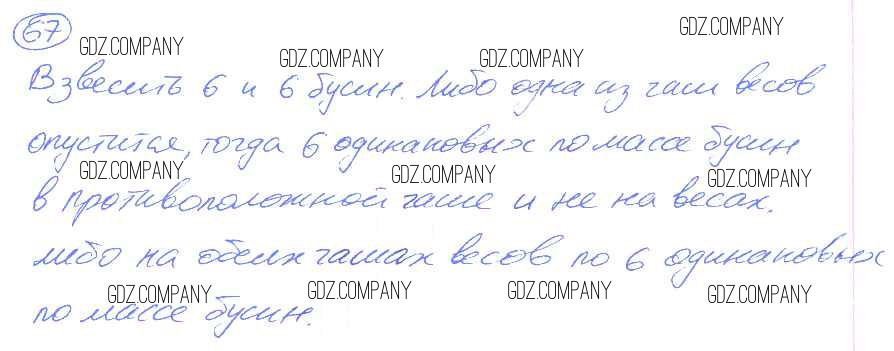 67
GDZ.COMPANY GDZ.COMPANY GDZ.COMPANY GDZ.COMPANY
Взвесить 6 и 6 бусин. Либо одна из чаш весов
опустится, тогда 6 одинаковых по массе бусин
GDZ.COMPANY GDZ.COMPANY GDZ.COMPANY
в противоположной чаше и не на весах.
либо на обеих чашах весов по 6 одинаковых
GDZ.COMPANY GDZ.COMPANY GDZ.COMPANY GDZ.COMPANY
по массе бусин.